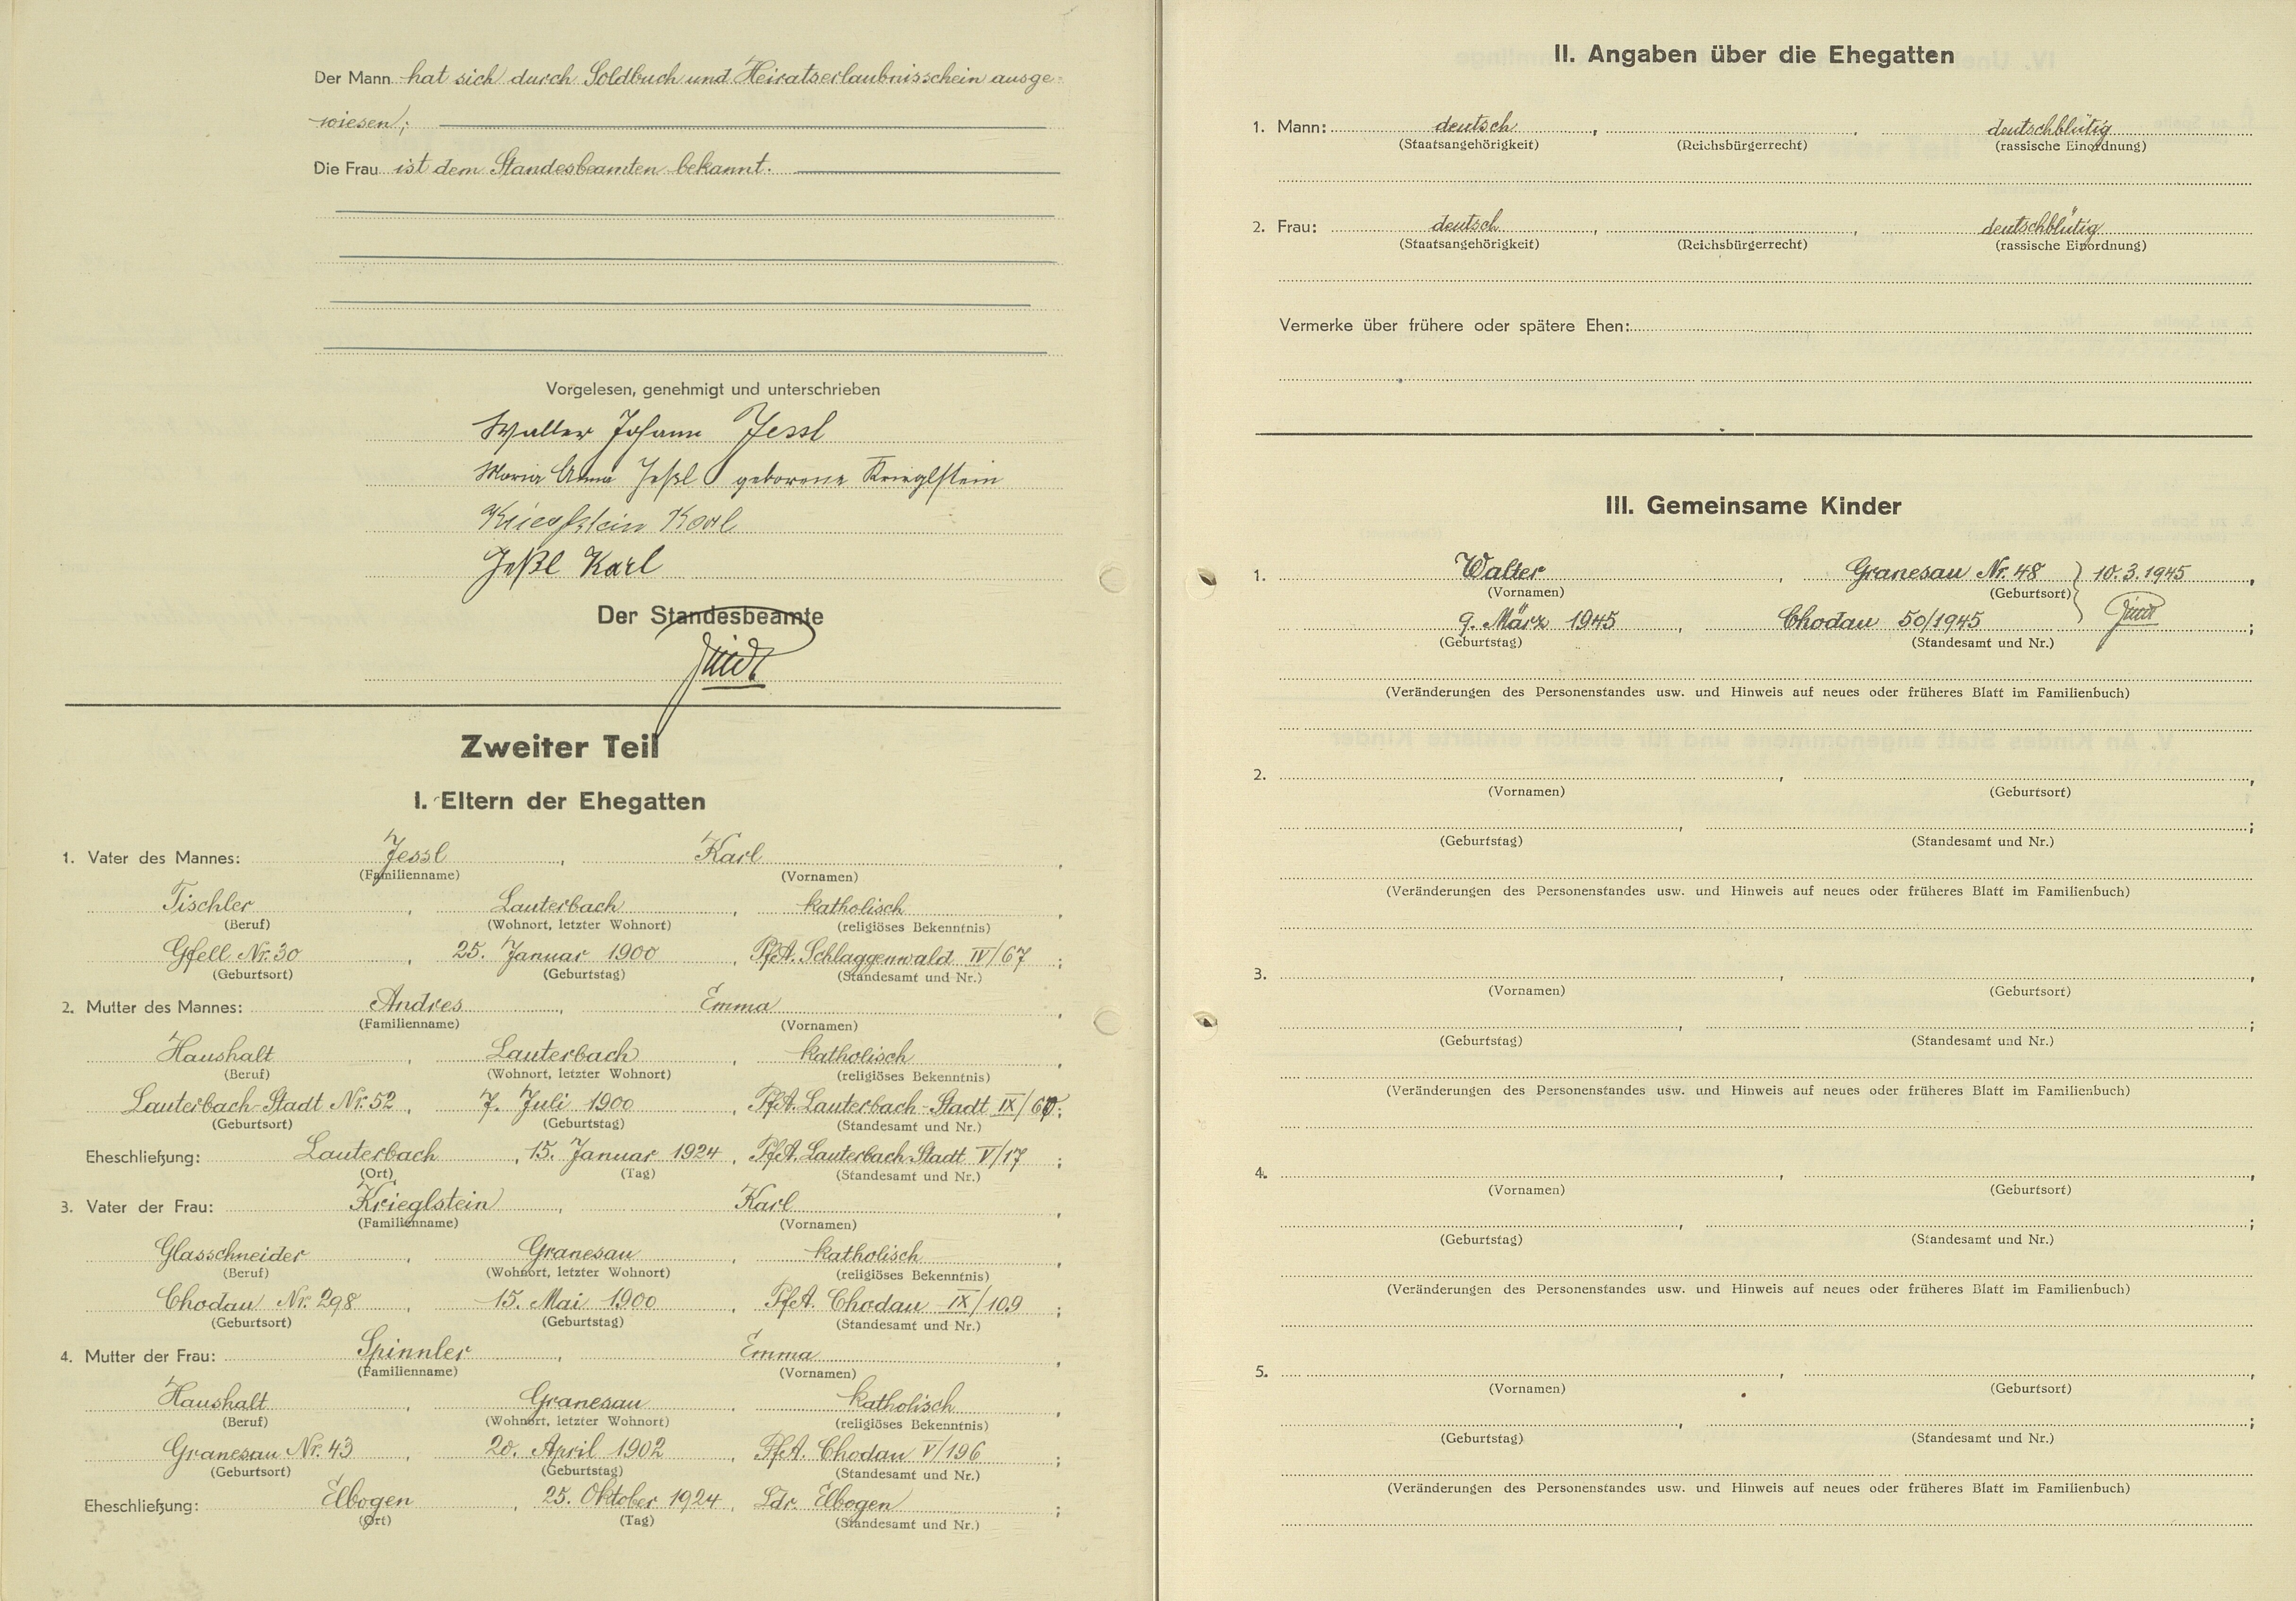 Der Mann hat sich durch Soldbuch und Heiratserlaubnisschein ausge-
wiesen;
Die Frau ist dem Standesbeamten bekannt.
Vorgelesen, genehmigt und unterschrieben
Walter Johann Jessl
Maria Anna Jeßl geborene Krieglstein
Krieglstein Karl
Jeßl Karl
Der Standesbeamte
Zweiter Teil
I. Eltern der Ehegatten
1. Vater des Mannes: Jessl , Karl ,
(Familienname) (Vornamen)
Tischler , Lauterbach , katholisch ,
(Beruf) (Wohnort, letzter Wohnort) (religiöses Bekenntnis)
Gfell Nr. 30 , 25. Januar 1900 , PfA. Schlaggenwald IV/67 ;
(Geburtsort) (Geburtstag) (Standesamt und Nr.)
2. Mutter des Mannes: Andres , Emma ,
(Familienname) (Vornamen)
Haushalt , Lauterbach , katholisch ,
(Beruf) (Wohnort, letzter Wohnort) (religiöses Bekenntnis)
Lauterbach-Stadt Nr. 52 , 7. Juli 1900 , PfA. Lauterbach-Stadt ;
(Geburtsort) (Geburtstag) (Standesamt und Nr.)
Eheschließung: Lauterbach , 15. Januar 1924 , PfA. Lauterbach-Stadt V/17 ;
(Ort) (Tag) (Standesamt und Nr.)
3. Vater der Frau: Krieglstein , Karl ,
(Familienname) (Vornamen)
Glasschneider , Granesau , katholisch ,
(Beruf) (Wohnort, letzter Wohnort) (religiöses Bekenntnis)
Chodau Nr. 298 , 15. Mai 1900 , PfA. Chodau IX/109 ;
(Geburtsort) (Geburtstag) (Standesamt und Nr.)
4. Mutter der Frau: Spinnler , Emma ,
(Familienname) (Vornamen)
Haushalt , Granesau , katholisch ,
(Beruf) (Wohnort, letzter Wohnort) (religiöses Bekenntnis)
Granesau Nr. 43 , 20. April 1902 , PfA. Chodau V/196 ;
(Geburtsort) (Geburtstag) (Standesamt und Nr.)
Eheschließung: Elbogen , 25. Oktober 1924 , Ldr. Elbogen ;
(Ort) (Tag) (Standesamt und Nr.)
II. Angaben über die Ehegatten
1. Mann: deutsch , , deutschblütig
(Staatsangehörigkeit) (Reichsbürgerrecht) (rassische Einordnung)
2. Frau: deutsch , , deutschblütig
(Staatsangehörigkeit) (Reichsbürgerrecht) (rassische Einordnung)
Vermerke über frühere oder spätere Ehen:
III. Gemeinsame Kinder
1. Walter , Granesau Nr. 48 } 10.3.1945 ,
(Vornamen) (Geburtsort)
9. März 1945 , Chodau 50/1945 ;
(Geburtstag) (Standesamt und Nr.)
(Veränderungen des Personenstandes usw. und Hinweis auf neues oder früheres Blatt im Familienbuch)
2. , ,
(Vornamen) (Geburtsort)
, ;
(Geburtstag) (Standesamt und Nr.)
(Veränderungen des Personenstandes usw. und Hinweis auf neues oder früheres Blatt im Familienbuch)
3. , ,
(Vornamen) (Geburtsort)
, ;
(Geburtstag) (Standesamt und Nr.)
(Veränderungen des Personenstandes usw. und Hinweis auf neues oder früheres Blatt im Familienbuch)
4. , ,
(Vornamen) (Geburtsort)
, ;
(Geburtstag) (Standesamt und Nr.)
(Veränderungen des Personenstandes usw. und Hinweis auf neues oder früheres Blatt im Familienbuch)
5. , ,
(Vornamen) (Geburtsort)
, ;
(Geburtstag) (Standesamt und Nr.)
(Veränderungen des Personenstandes usw. und Hinweis auf neues oder früheres Blatt im Familienbuch)